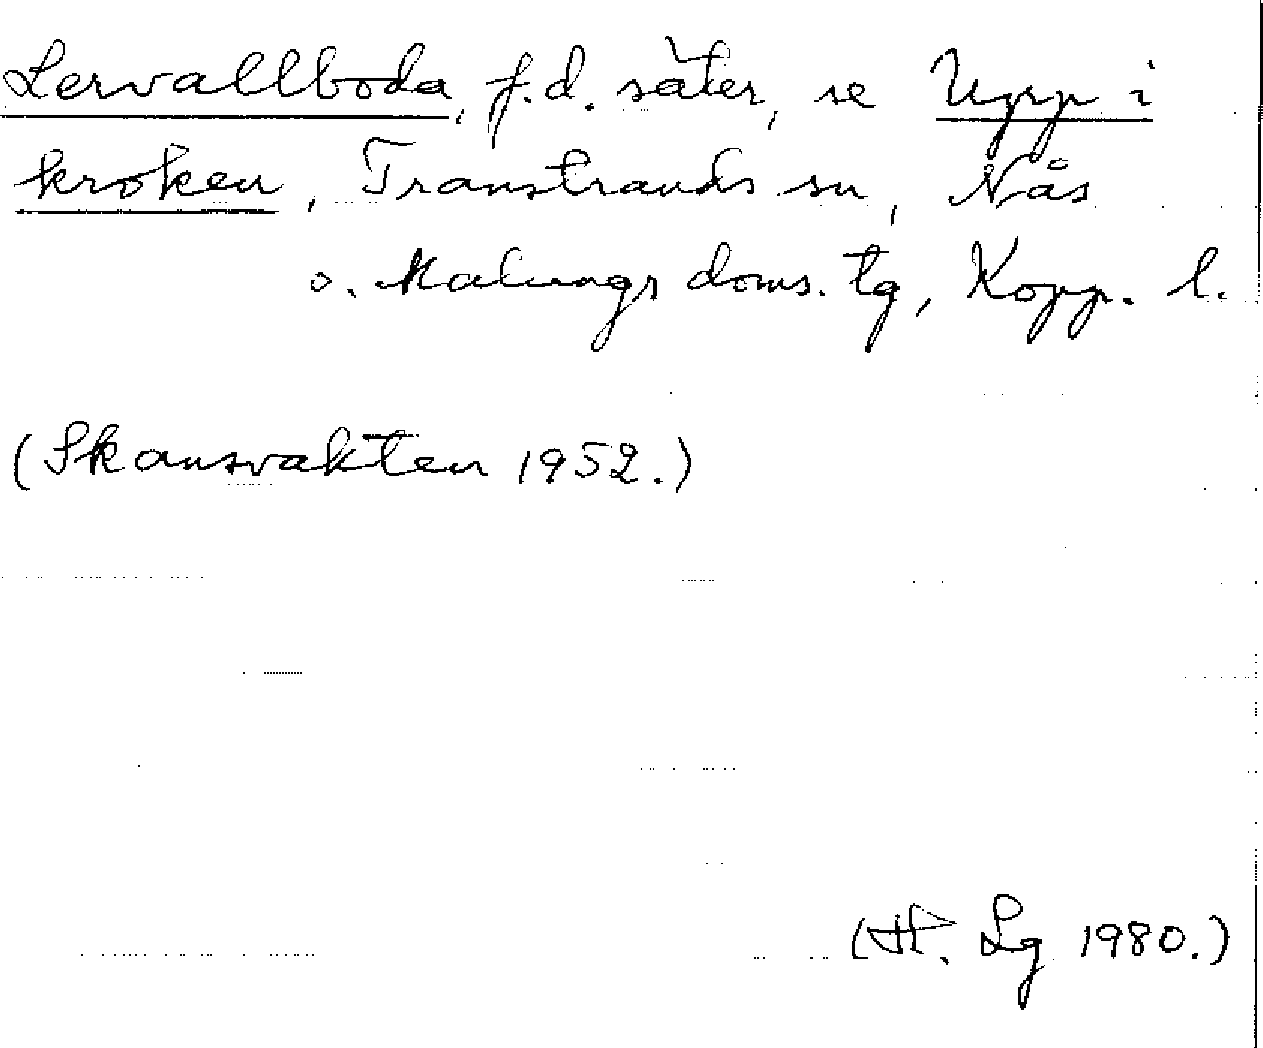 Lervallboda, f.d. säter, se Upp i
kroken, Transtrands sn, Nås
o. Malungs doms. tg, Kopp. l.
(Skansvakten 1952.)
(H. Lg 1980.)